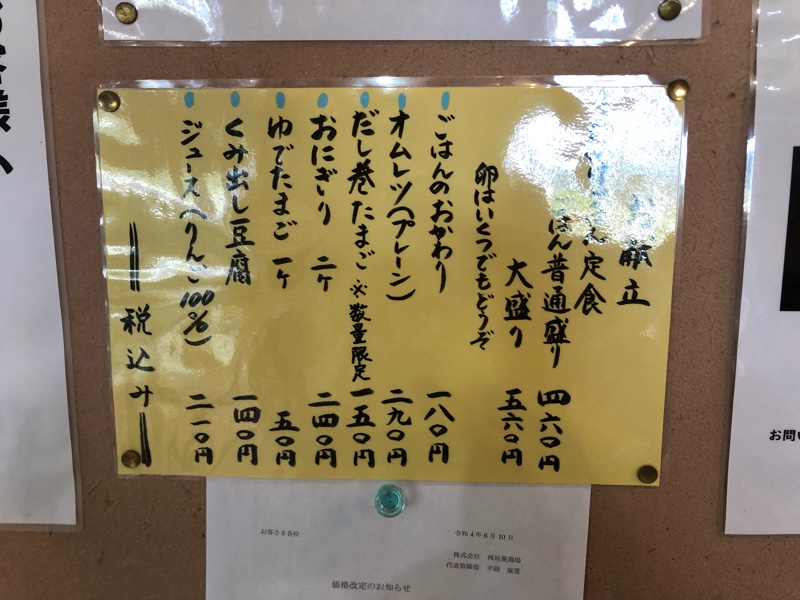 献立
定食
はん普通盛り 四六〇円
大盛り 五六〇円
卵はいくつでもどうぞ
ごはんのおかわり 一八〇円
オムレツ(プレーン) 二九〇円
だし巻たまご ※数量限定 一五〇円
おにぎり 二ケ 二四〇円
ゆでたまご 一ケ 五〇円
くみ出し豆腐 一四〇円
ジュース(りんご100%) 二一〇円
税込み
お客様へ
お問い
お客さま各位
令和4年6月10日
株式会社 西垣養鶏場
代表取締役
価格改定のお知らせ